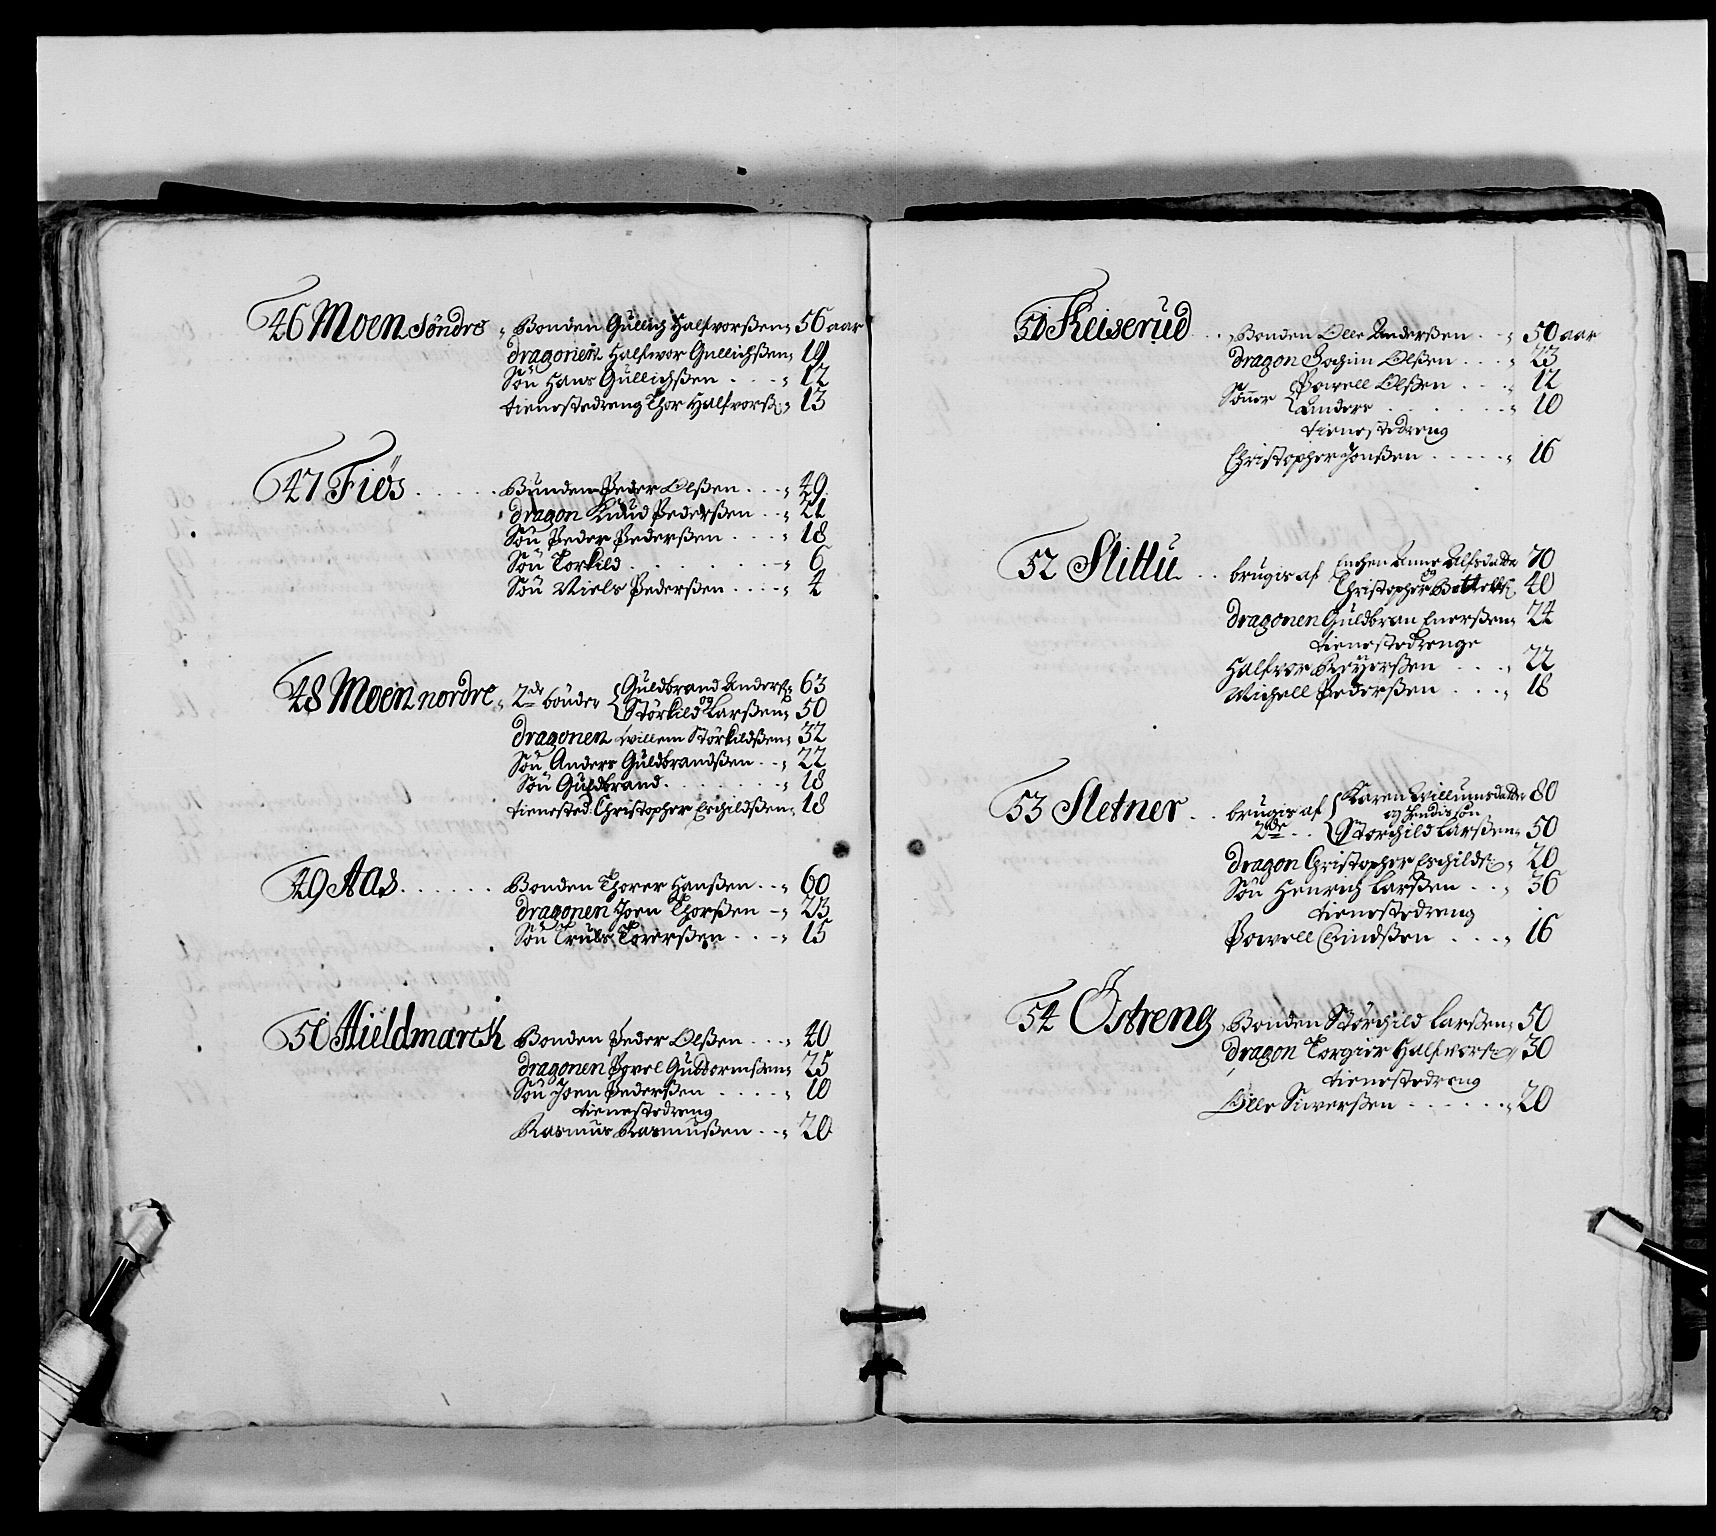 46 Moen Söndre „ Bonden Gullich Halfvorßen „ 56 aar
dragonen Halfwor Gullichßen „ 19
Sön Hans Gullichßen . . . „ 12
tienestedreng Thor Halfvorß: „ 13
47 Fiös . . . . . Bunden Peder Olßen . . . „ 49
dragon Knud Pederßen . . „ 21
Sön Peder Pederßen . . . „ 18
Sön Torkild . . . . . „ 6
Sön Niels Pederßen . . . . „ 4
48 Moen nordre „ 2de bönder { Guldbrand Anderß: 63
og
Störkild Larßen „ 50
dragonen Willem Störkildßen „ 32
Sön Anders Guldbrandßen . . „ 22
Sön Guldbrand . . . . . „ 18
tienested: Christopher Eschildßen „ 18
49 Aas . . . . . . Bonden Thorer Hanßen . . „ 60
dragonen Joen Thorßen – „ 23
Sön Truls Torerßen . . . „ 15
50 Hieldmarck Bonden Peder Olßen . . . „ 40
dragonen Povel Guldormßen „ 25
Sön Joen Pederßen . . . . „ 10
tienestedreng
Rasmus Rasmußen . . „ 20
Keiserud . . . „ Bonden Olle Anderßen . . „ 50 aar
dragon Jochim Olßen . . . „ 23
Sönner { Powell Olßen . . . „ 12
Anders . . . . . . „ 10
tienestedreng
Christopher Jonßen . . . . . „ 16
52 Slittu . . brugis af { Enchen Anne Alfsdatter 70
og
Christopher 40
dragonen Guldbran Enerßen „ 24
tienestedrenge
Halfvor Reyerßen . . . „ 22
Michell Pederßen . . . „ 18
53 Sletner . . brugis af { Karen Willumsdatter 80
og hendis sön
2de . . { Storchild Larßen „ 50
dragon Christopher Eschildß: „ 20
Sön Henrich Larßen . . „ 36
tienestedreng
Powell Eindßen . . . „ 16
54 Östreng „ Bonden Störchild Larßen „ 50
dragon Torgier Halfvorß: „ 30
tienestedreng
Olle Siverßen . . . . . . „ 20